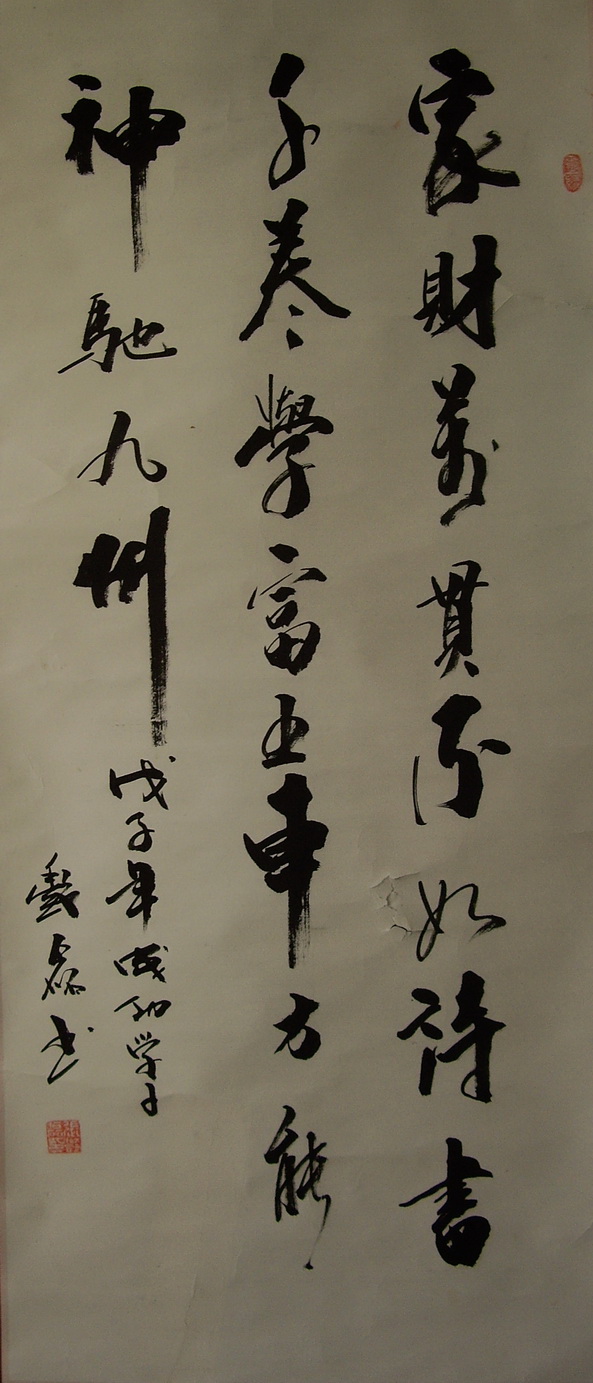 家財萬貫不如詩書
千卷學富五車方能
神馳九州
戊子年
磊书